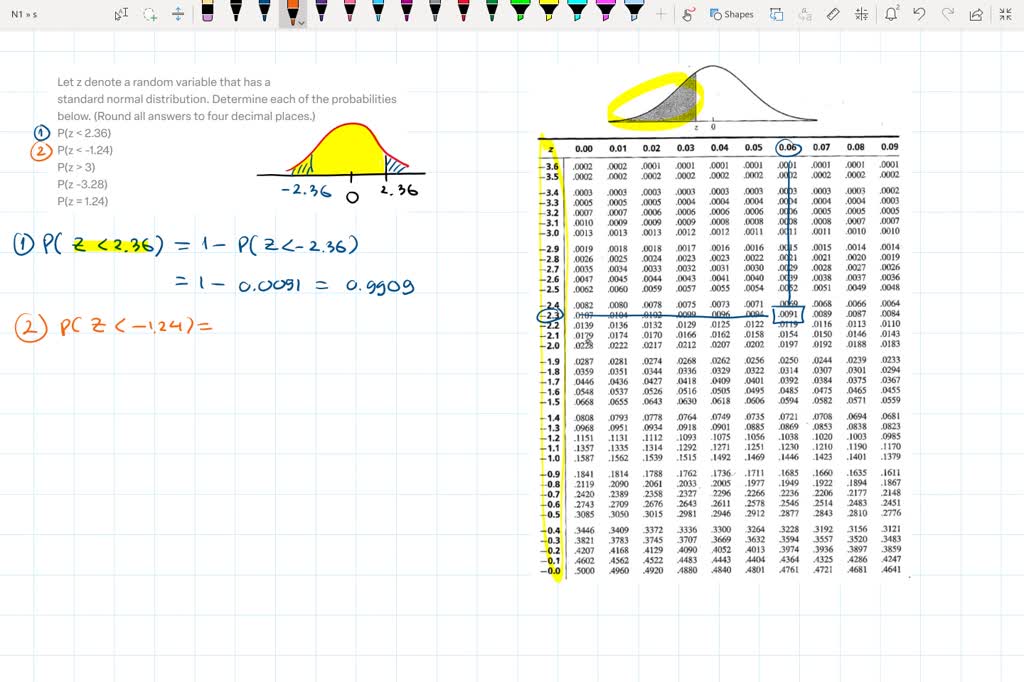 N1 » s
Shapes
Let z denote a random variable that has a
standard normal distribution. Determine each of the probabilities
below. (Round all answers to four decimal places.)
① P(z < 2.36)
② P(z < -1.24)
P(z > 3)
P(z -3.28)
P(z = 1.24)
-2.36 0 2.36
① P( Z < 2.36) = 1 - P( Z < -2.36)
= 1 - 0.0091 = 0.9909
② P( Z < -1.24) =
z 0
z 0.00 0.01 0.02 0.03 0.04 0.05 0.06 0.07 0.08 0.09
-3.6 .0002 .0002 .0001 .0001 .0001 .0001 .0001 .0001 .0001 .0001
-3.5 .0002 .0002 .0002 .0002 .0002 .0002 .0002 .0002 .0002 .0002
-3.4 .0003 .0003 .0003 .0003 .0003 .0003 .0003 .0003 .0003 .0002
-3.3 .0005 .0005 .0005 .0004 .0004 .0004 .0004 .0004 .0004 .0003
-3.2 .0007 .0007 .0006 .0006 .0006 .0006 .0006 .0005 .0005 .0005
-3.1 .0010 .0009 .0009 .0009 .0008 .0008 .0008 .0008 .0007 .0007
-3.0 .0013 .0013 .0013 .0012 .0012 .0011 .0011 .0011 .0010 .0010
-2.9 .0019 .0018 .0018 .0017 .0016 .0016 .0015 .0015 .0014 .0014
-2.8 .0026 .0025 .0024 .0023 .0023 .0022 .0021 .0021 .0020 .0019
-2.7 .0035 .0034 .0033 .0032 .0031 .0030 .0029 .0028 .0027 .0026
-2.6 .0047 .0045 .0044 .0043 .0041 .0040 .0039 .0038 .0037 .0036
-2.5 .0062 .0060 .0059 .0057 .0055 .0054 .0052 .0051 .0049 .0048
-2.4 .0082 .0080 .0078 .0075 .0073 .0071 .0069 .0068 .0066 .0064
-2.3 .0107 .0104 .0102 .0099 .0096 .0094 .0091 .0089 .0087 .0084
-2.2 .0139 .0136 .0132 .0129 .0125 .0122 .0119 .0116 .0113 .0110
-2.1 .0179 .0174 .0170 .0166 .0162 .0158 .0154 .0150 .0146 .0143
-2.0 .0228 .0222 .0217 .0212 .0207 .0202 .0197 .0192 .0188 .0183
-1.9 .0287 .0281 .0274 .0268 .0262 .0256 .0250 .0244 .0239 .0233
-1.8 .0359 .0351 .0344 .0336 .0329 .0322 .0314 .0307 .0301 .0294
-1.7 .0446 .0436 .0427 .0418 .0409 .0401 .0392 .0384 .0375 .0367
-1.6 .0548 .0537 .0526 .0516 .0505 .0495 .0485 .0475 .0465 .0455
-1.5 .0668 .0655 .0643 .0630 .0618 .0606 .0594 .0582 .0571 .0559
-1.4 .0808 .0793 .0778 .0764 .0749 .0735 .0721 .0708 .0694 .0681
-1.3 .0968 .0951 .0934 .0918 .0901 .0885 .0869 .0853 .0838 .0823
-1.2 .1151 .1131 .1112 .1093 .1075 .1056 .1038 .1020 .1003 .0985
-1.1 .1357 .1335 .1314 .1292 .1271 .1251 .1230 .1210 .1190 .1170
-1.0 .1587 .1562 .1539 .1515 .1492 .1469 .1446 .1423 .1401 .1379
-0.9 .1841 .1814 .1788 .1762 .1736 .1711 .1685 .1660 .1635 .1611
-0.8 .2119 .2090 .2061 .2033 .2005 .1977 .1949 .1922 .1894 .1867
-0.7 .2420 .2389 .2358 .2327 .2296 .2266 .2236 .2206 .2177 .2148
-0.6 .2743 .2709 .2676 .2643 .2611 .2578 .2546 .2514 .2483 .2451
-0.5 .3085 .3050 .3015 .2981 .2946 .2912 .2877 .2843 .2810 .2776
-0.4 .3446 .3409 .3372 .3336 .3300 .3264 .3228 .3192 .3156 .3121
-0.3 .3821 .3783 .3745 .3707 .3669 .3632 .3594 .3557 .3520 .3483
-0.2 .4207 .4168 .4129 .4090 .4052 .4013 .3974 .3936 .3897 .3859
-0.1 .4602 .4562 .4522 .4483 .4443 .4404 .4364 .4325 .4286 .4247
-0.0 .5000 .4960 .4920 .4880 .4840 .4801 .4761 .4721 .4681 .4641